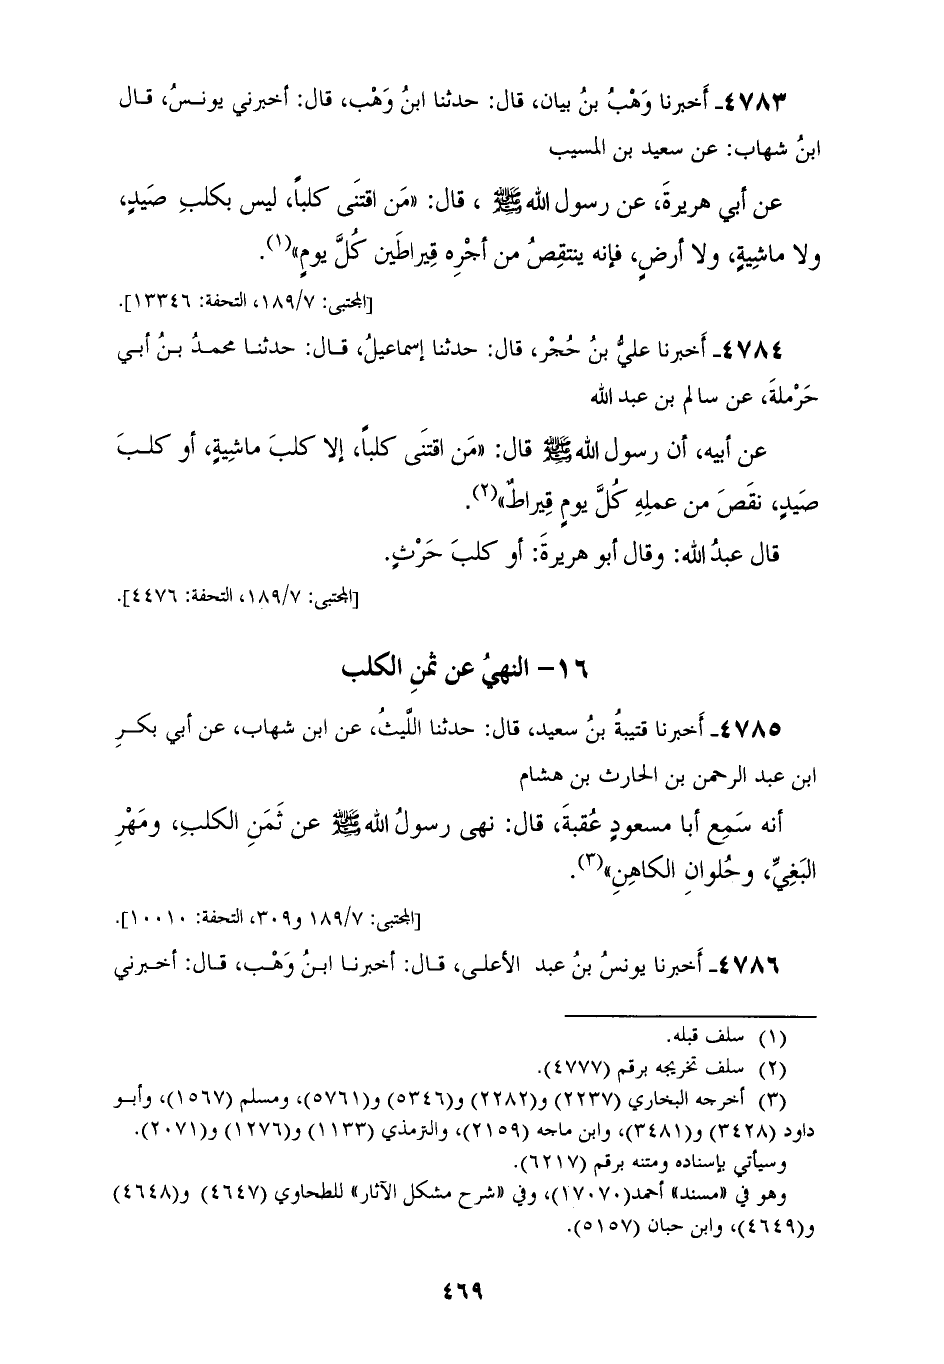 ٤٧٨٣ـ أَخبرنا وَهْبُ بنُ بيان، قال: حدثنا ابنُ وَهْب، قال: أخبرني يونسُ، قال
ابنُ شهاب: عن سعيد بن المسيب
عن أبي هريرةَ، عن رسول الله ﷺ ، قال: «مَن اقتَنَى كلباً، ليس بكلبِ صَيدٍ،
ولا ماشِيةٍ، ولا أرضٍ، فإنه ينتقِصُ من أجْرِه قِيراطَين كُلَّ يومٍ»(١).
[المجتبى: ١٨٩/٧، التحفة: ١٣٣٤٦].
٤٧٨٤ـ أَخبرنا عليُّ بنُ حُجْر، قال: حدثنا إسماعيلُ، قال: حدثنا محمدُ بنُ أبي
حَرْملةَ، عن سالم بن عبد الله
عن أبيه، أن رسول الله ﷺ قال: «مَن اقتَنَى كلباً، إلا كلبَ ماشِيةٍ، أو كلبَ
صَيدٍ، نقَصَ من عملِهِ كُلَّ يومٍ قِيراطٌ»(٢).
قال عبدُ الله: وقال أبو هريرةَ: أو كلبَ حَرْثٍ.
[المجتبى: ١٨٩/٧، التحفة: ٤٤٧٦].
١٦– النهيُ عن ثمنِ الكلب
٤٧٨٥ـ أَخبرنا قتيبةُ بنُ سعيد، قال: حدثنا اللَّيثُ، عن ابن شهاب، عن أبي بكرِ
ابن عبد الرحمن بن الحارث بن هشام
أنه سَمِع أبا مسعودٍ عُقبةَ، قال: نهى رسولُ الله ﷺ عن ثَمَنِ الكلبِ، ومَهْرِ
البَغِيِّ، وحُلوانِ الكاهِنِ»(٣).
[المجتبى: ١٨٩/٧ و٣٠٩، التحفة: ١٠٠١٠].
٤٧٨٦ـ أَخبرنا يونسُ بنُ عبد الأعلى، قال: أخبرنا ابنُ وَهْب، قال: أخبرني
(١) سلف قبله.
(٢) سلف تخريجه برقم (٤٧٧٧).
(٣) أخرجه البخاري (٢٢٣٧) و(٢٢٨٢) و(٥٣٤٦) و(٥٧٦١)، ومسلم (١٥٦٧)، وأبو
داود (٣٤٢٨) و(٣٤٨١)، وابن ماجه (٢١٥٩)، والترمذي (١١٣٣) و(١٢٧٦) و(٢٠٧١).
وسيأتي بإسناده ومتنه برقم (٦٢١٧).
وهو في «مسند» أحمد(١٧٠٧٠)، وفي «شرح مشكل الآثار» للطحاوي (٤٦٤٧) و(٤٦٤٨)
و(٤٦٤٩)، وابن حبان (٥١٥٧).
٤٦٩